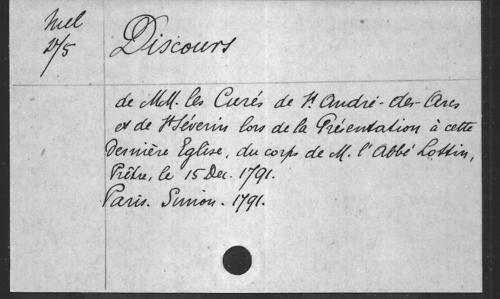 Mel
2/5
Discours
de MM. les Curés de St André-des-Arcs
et de St Séverin lors de la Présentation à cette
Dernière Eglise, du corps de M. l'Abbé Lottin,
Prêtre, le 15 Dec. 1791.
Paris. Simon. 1791.